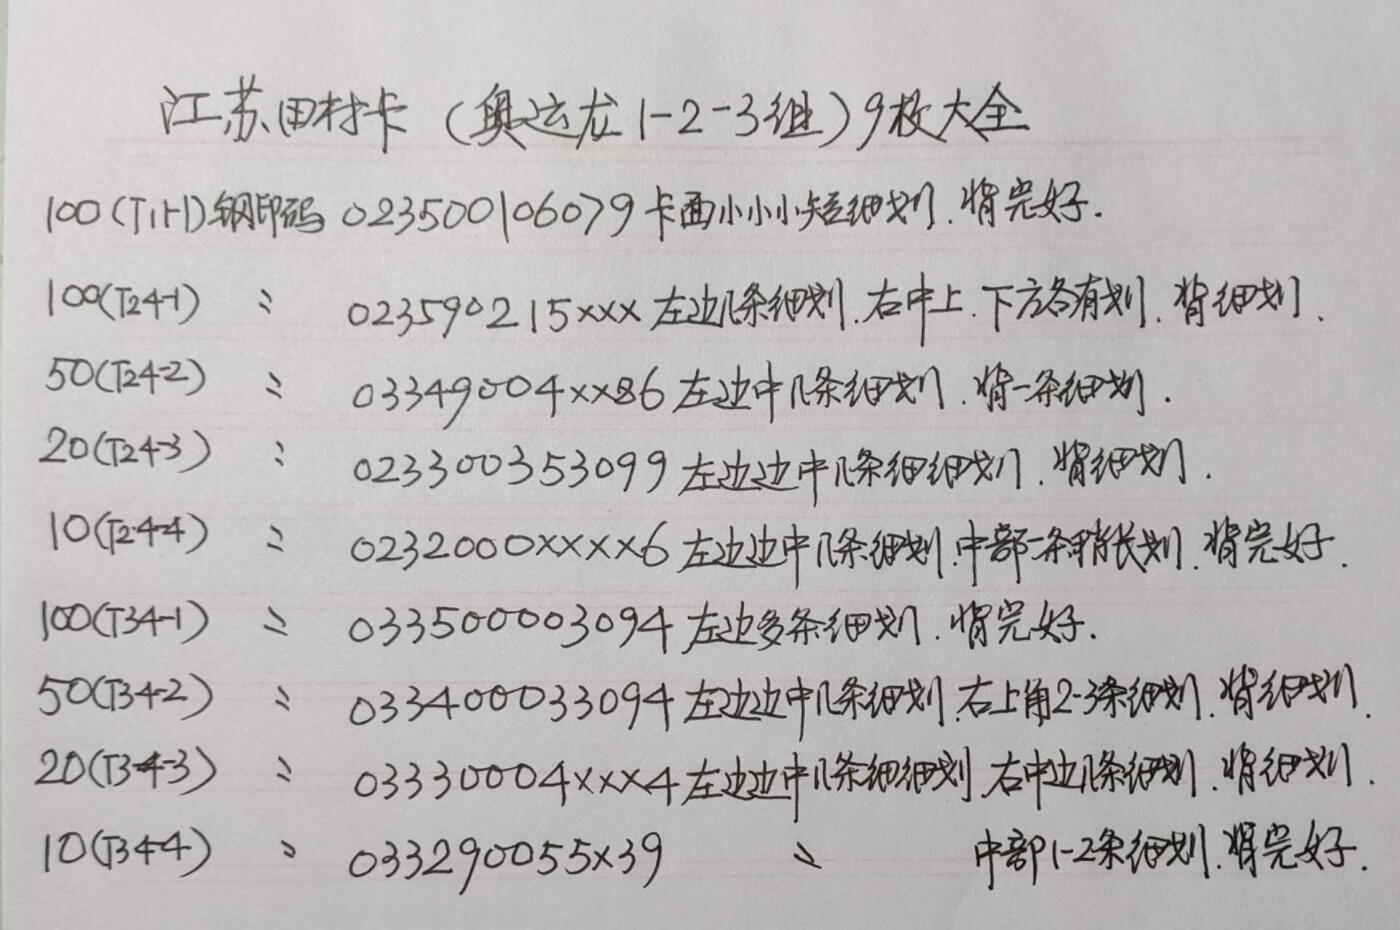 江苏田村卡（奥运龙1-2-3组）9枚大全
100（T1-1-1）钢印码 023500106079卡面小小小短细划.背完好.
100（T2-4-1） 〃 023590215×××左边几条细划.右中上.下方各有划.背细划.
50（T2-4-2） 〃 03349004××86左边中几条细划.背一条细划.
20（T2-4-3） 〃 023300353099左边边中几条细细划.背细划.
10（T2-4-4） 〃 0232000××××6左边边中几条细划.中部一条稍长划.背完好.
100（T3-4-1） 〃 033500003094左边多条细划.背完好.
50（T3-4-2） 〃 033400033094左边边中几条细划.右上角2-3条细划.背细划.
20（T3-4-3） 〃 03330004×××4左边边中几条细细划.右中边几条细划.背细划.
10（T3-4-4） 〃 033290055×39 〃 中部1-2条细划.背完好.